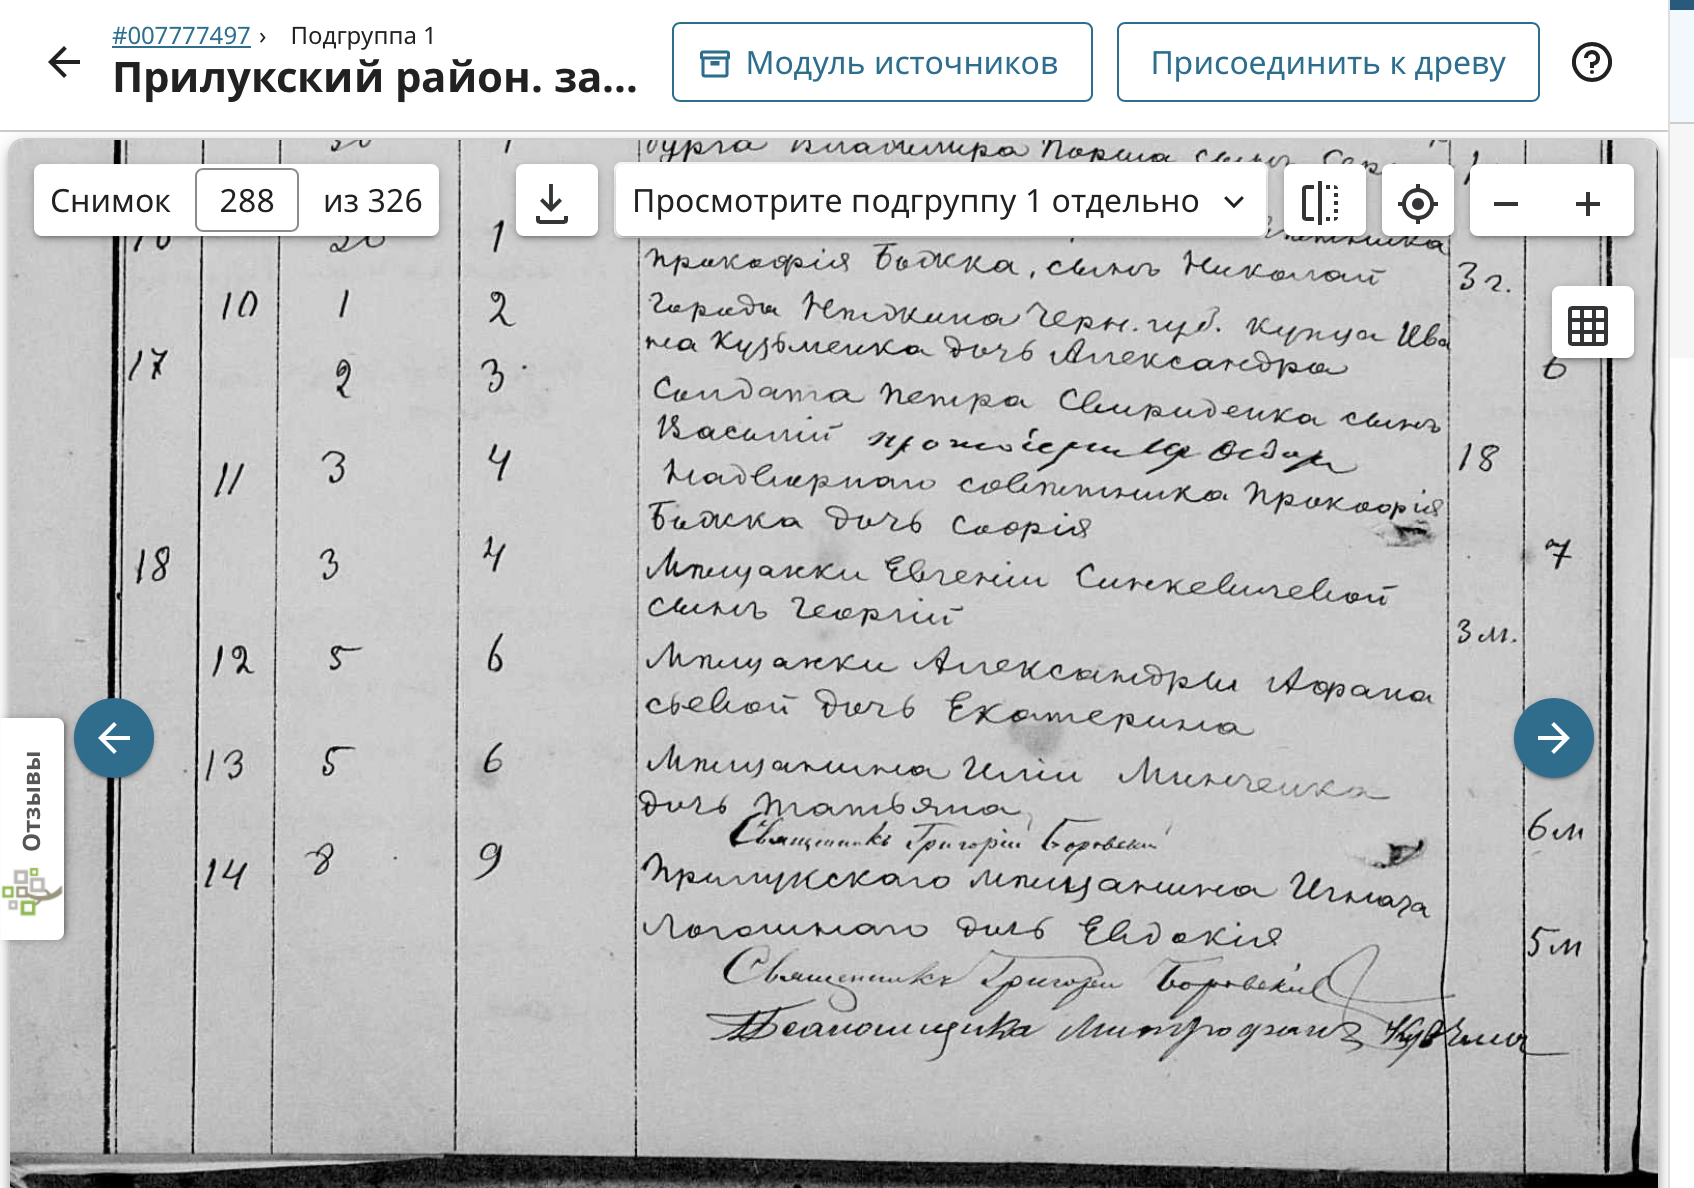 #007777497 › Подгруппа 1
Прилукский район. за...
Модуль источников
Присоединить к древу
бурга Владимира сынъ
Снимок 288 из 326
Просмотрите подгруппу 1 отдельно
1
Прокофія Божка, сынъ Николай 3 г.
10 1 2 Города Нѣжина Черн. губ. купца Ива
на Кузьменка дочь Александра 6
17 2 3 Солдата Петра Свириденка сынъ
Василій 18
11 3 4 Надворнаго совѣтника Прокофія
Божка дочь Софія 7
18 3 4 Мѣщанки Евгеніи Синкевичевой
сынъ Георгій 3 м.
12 5 6 Мѣщанки Александры Афана
сьевой дочь Екатерина
13 5 6 Мѣщанина Иліи Минченка
дочь Татьяна 6 м
Священникъ Григорій Боровскій
14 8 9 Прилукскаго мѣщанина Игната
дочь Евдокія 5 м
Священникъ Григорій Боровскій
Псаломщикъ Митрофанъ
Отзывы